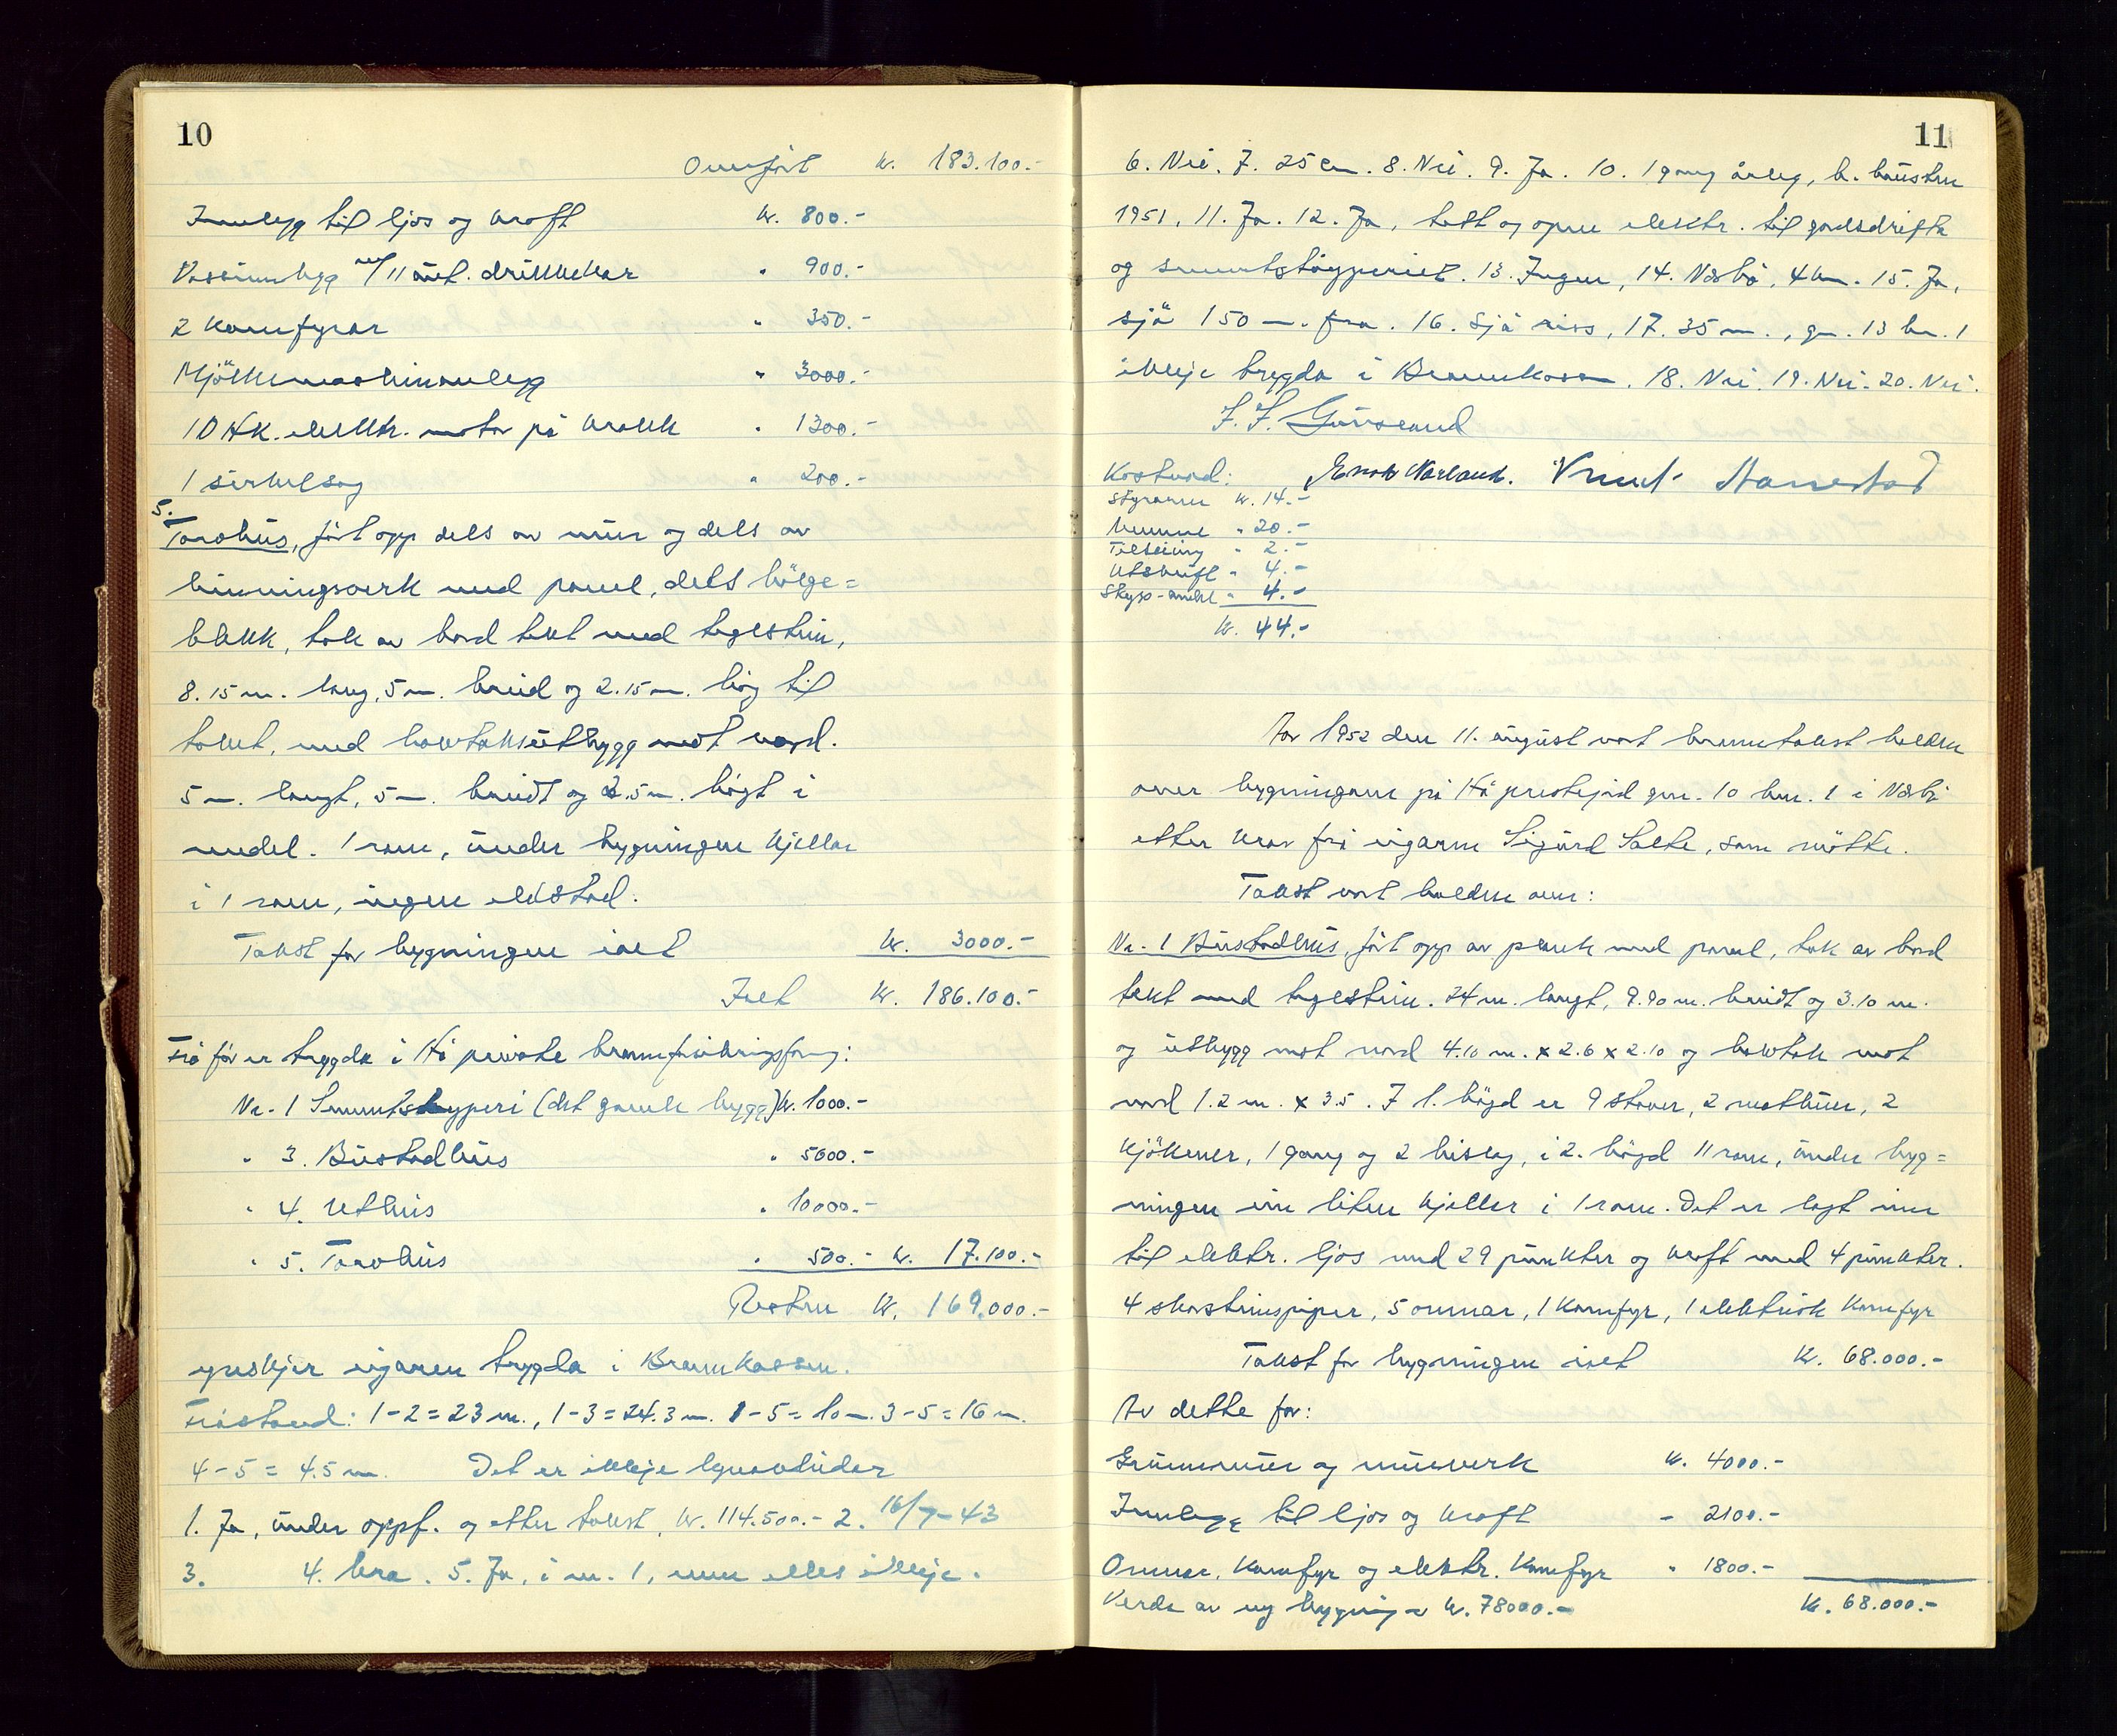 10
Overført kr. 183.100.-
Innlegg til ljos og kraft kr. 800.-
Vassinnlegg m/11 aut. drikkekar " 900.-
2 komfyrar " 350.-
Mjölkemaskinanlegg " 3000.-
10 HK. elektr. motor på krakk " 1300.-
1 sirkelsag " 200.-
5.
Tarahus, fört opp dels av mur og dels av
binningsverk med panel, dels bölge=
blekk, tak av bord tekt med teglstein,
8.15 m. lang, 5 m. breid og 2.15 m. hög til
taket, med halvtaksutbygg mot nord.
5 m. langt, 5 m. breidt og 2.5 m. högt i
medel. 1 rom, under bygningen kjellar
i 1 rom, ingen eldstad.
Takst for bygningen ialt kr. 3000.-
Ialt kr. 186.100.-
Frå för er trygda i Hå private brannforsikringsforeng:
Nr. 1 Sementstøyperi (det gamle bygg) kr. 1000.-
" 3. Bustadhus " 5600.-
" 4. Uthus " 10000.-
" 5. Tarahus " 500.- kr. 17.100.-
Resten kr. 169.000.-
ynskjer eigaren trygda i Brannkassen.
Fråstand: 1-2=23 m., 1-3=24.3 m. 1-5=10 m. 3-5=16 m.
4-5=4.5 m. Det er ikkje lynavleidar
1. Ja, under oppf. og etter takst, kr. 114.500.- 2. 16/7-43
3. 4. bra. 5. Ja, i nr. 1, men elles ikkje.
11
6. Nei. 7. 25 cm. 8. Nei. 9. Ja. 10. 1 gang årleg, h. hausten
1951, 11. Ja. 12. Ja, tett og open elektr. til gardsdrifta
og sementstøyperiet. 13. Ingen, 14. Nærbö, 4 km. 15. Ja,
sjå 150 m. fra. 16. Sjå riss, 17. 35 m., gn. 13 bn. 1
ikkje trygda i Brannkassen. 18. Nei. 19. Nei. 20. Nei.
Kostnad: Knut
Styraren kr. 14.-
Mennene " 20.-
Tilseiing " 2.-
Utskrift " 4.-
Skyss-andel " 4.-
kr. 44.-
År 1952 den 11. august vart branntakst halden
over bygningane på Hå prestejord gnr. 10 bnr. 1 i Nærbö
etter krav frå eigaren Sigurd Salte, som mötte.
Takst vart halden over:
Nr. 1 Bustadhus, fört opp av plank med panel, tak av bord
tekt med teglstein. 24 m. langt, 9.90 m. breidt og 3.10 m.
og utbygg mot nord 4.10 m. x 2.6 x 2.10 og halvtak mot
nord 1.2 m. x 3.5. I 1. högd er 9 stover, 2 matbuer, 2
kjökener, 1 gang og 2 bislag, i 2. högd 11 rom, under byg=
ningen ein liten kjeller i 1 rom. Det er lagt inn
til elektr. ljos med 29 punkter og kraft med 4 punkter.
4 skorsteinspiper, 5 omnar, 1 komfyr, 1 elektrisk komfyr
Takst for bygningen ialt kr. 68.000.-
Av dette for:
Grunnmur og murverk kr. 4000.-
Innlegg til ljos og kraft - 2100.-
Omnar, komfyr og elektr. komfyr " 1800.-
Verde av ny bygning kr. 78000.- kr. 68.000.-